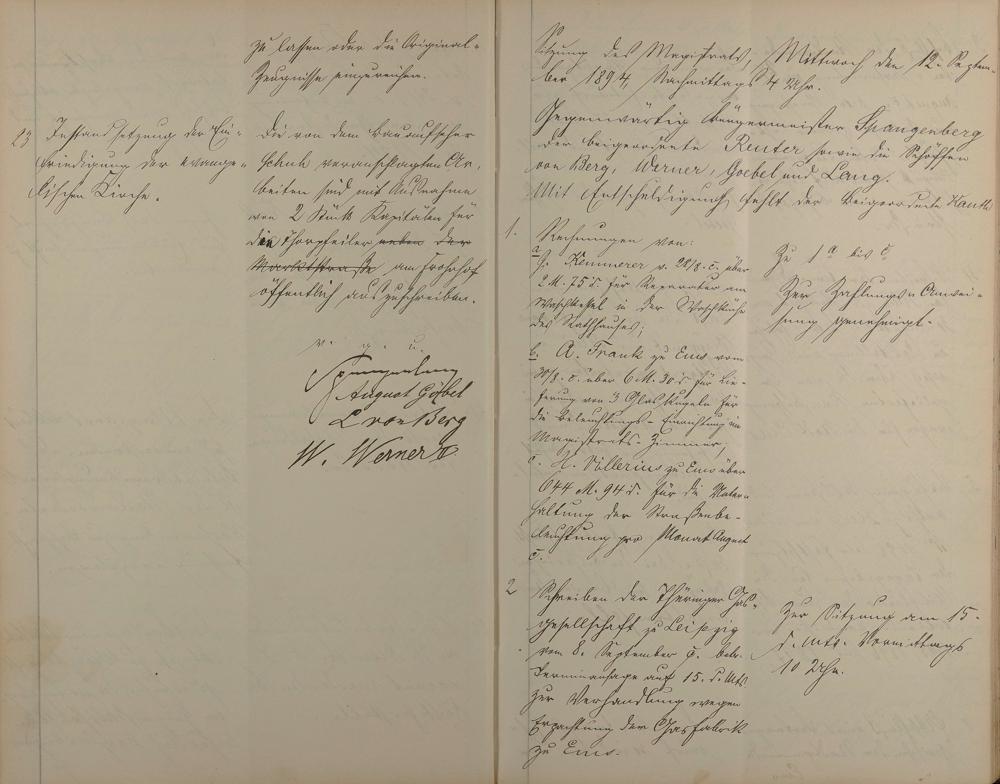 zu lassen oder die Original-
Zeugnisse einzureichen.
23 Instandsetzung der Ein-
friedigung der evange-
lischen Kirche.
Die von dem Bauaufseher
Schuh veranschlagten Ar-
beiten sind mit Ausnahme
von 2 Stück Kapitälen für
die Thorpfeiler neben der
Marktstraße am Frohnhof
öffentlich auszuschreiben.
v. g. u.
Spangenberg
August Göbel
L von Berg
W. Werner
Sitzung des Magistrats, Mittwoch den 12. Septem-
ber 1894, Nachmittags 4 Uhr.
Gegenwärtig Bürgermeister Spangenberg
der Beigeordnete Reuter sowie die Schöffen
von Berg, Werner, Goebel und Lang.
Mit Entschuldigung fehlt der Beigeordnete Kauth
1. Rechnungen von:
a J. Kemmerer v. 28/8. c. über
2 M. 75 d. für Reparatur am
Waschkessel in der Waschküche
des Rathhauses;
b. A. Frank zu Ems vom
30/8. c. über 6 M. 30 d. für Lie-
ferung von 3 Glaskugeln für
die Beleuchtungs-Einrichtung im
Magistrats-Zimmer;
c. H. Völlerius zu Ems über
644 M. 94 d. für die Unter-
haltung der Straßenbe-
leuchtung pro Monat August
c.
Zu 1 a bis c
Zur Zahlungs-Anwei-
sung genehmigt.
2 Schreiben der Thüringer Gas-
gesellschaft zu Leipzig
vom 8. September c. betr.
Terminanfrage auf 15. d. Mts.
zur Verhandlung wegen
Erpachtung der Gasfabrik
zu Ems.
Zur Sitzung am 15.
d. Mts. Vormittags
10 Uhr.